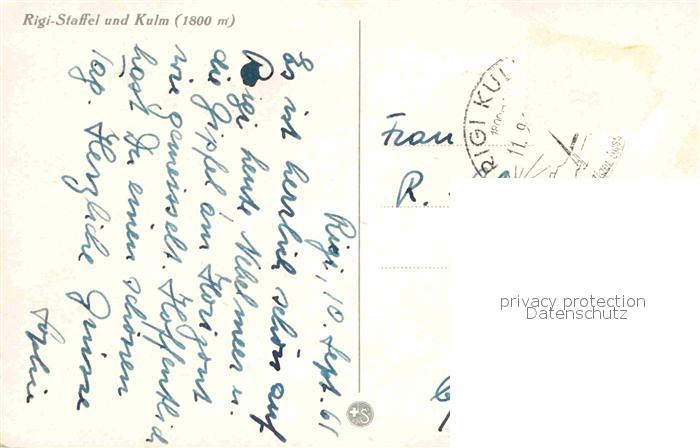 Rigi-Staffel und Kulm (1800 m)
Rigi, 10. Sept. 61
Es ist herrlich schön auf
Rigi heute Nebelmeer u.
die Gipfel am Horizont
wie gemeisselt. Hoffentlich
hast Du einen schönen
Tag. Herzliche Grüsse
Sophie
Frau
R.
RIGI KUL
1800m
11.9.
+S
privacy protection
Datenschutz